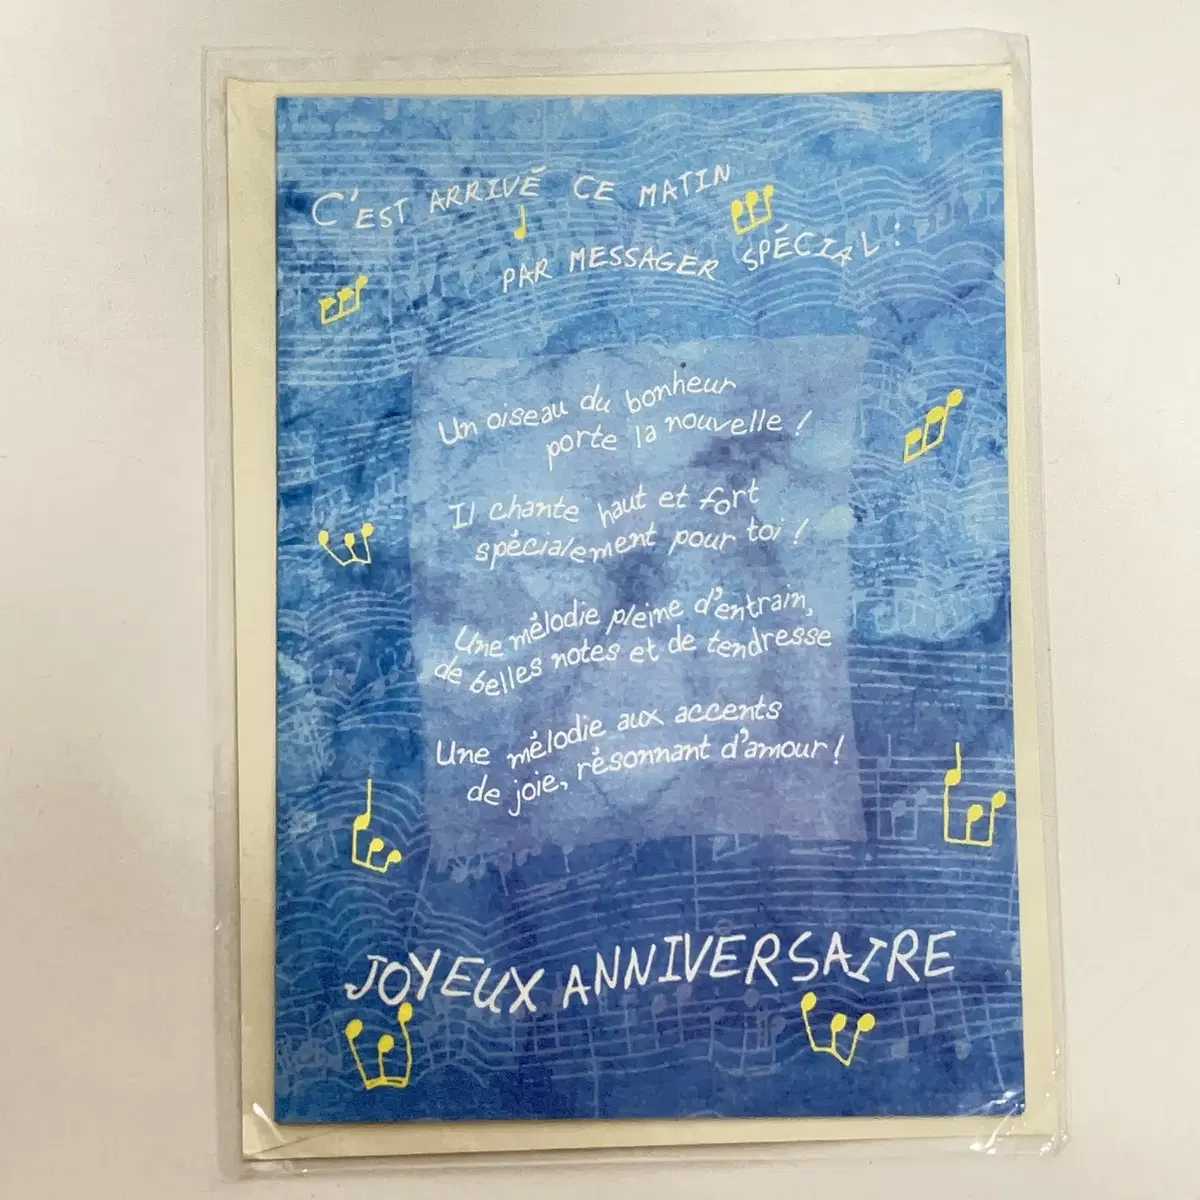 C'EST ARRIVÉ CE MATIN
PAR MESSAGER SPÉCIAL :
Un oiseau du bonheur
porte la nouvelle !
Il chante haut et fort
spécialement pour toi !
Une mélodie pleine d'entrain,
de belles notes et de tendresse
Une mélodie aux accents
de joie, résonnant d'amour !
JOYEUX ANNIVERSAIRE